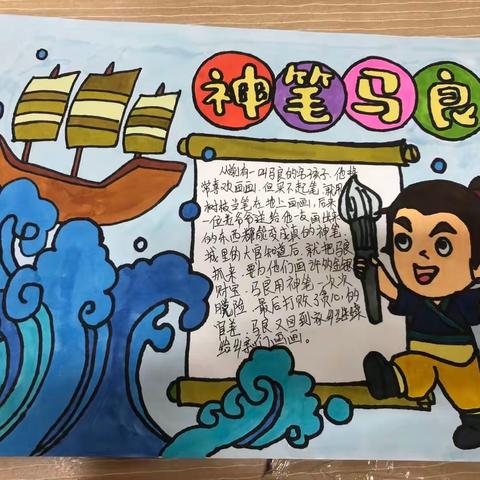 神笔马良
从前有一叫马良的穷孩子,他非
常喜欢画画,但买不起笔,就用
树枝当笔在地上画画,后来
一位老爷爷送给他一支画出来
的东西都能变成真的神笔,
城里的大官知道后,就把马良
抓来,要为他们画许多金银
财宝,马良用神笔一次次
脱险,最后打败了贪心的
官差,马良又回到家乡继续
给乡亲们画画。